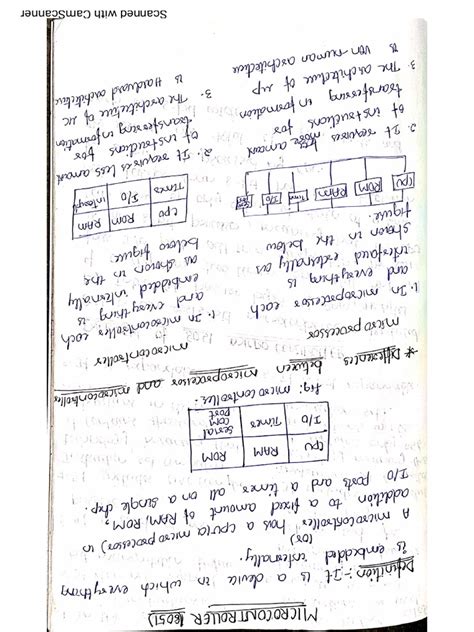 MICROCONTROLLER (8051)
Definition:- It is a device in which everything
is embedded internally.
(or)
A microcontroller has a cpu (a micro processor) in
addition to a fixed amount of RAM, ROM,
I/O ports and a timer all on a single chip.
CPU RAM ROM
I/O Timer serial COM port
fig: micro controller.
* Differences between microprocessor and microcontroller
micro processor
1. In microprocessor each
and everything is
interfaced externally as
shown in the below
figure.
CPU ROM RAM Timer I/O
2. It requires more amount
of instructions for
transferring information
3. The architecture of up
is von-numan architecture
microcontroller
1. In microcontroller each
and every thing is
embedded internally
as shown in the
below figure.
CPU ROM RAM
Timer I/O
2. It requires less amount
of instructions for
transferring information
3. The architecture of uc
is Hardvard architecture
Scanned with CamScanner